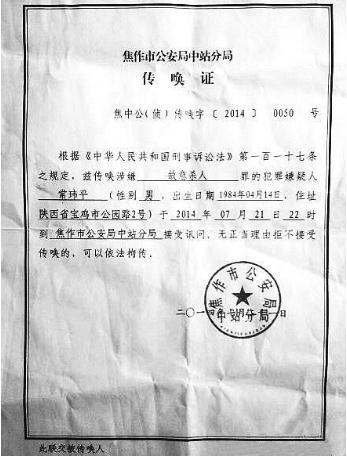 焦作市公安局中站分局
传唤证
焦中公（侦）传唤字〔2014〕 0050 号
根据《中华人民共和国刑事诉讼法》第一百一十七条
之规定，兹传唤涉嫌 故意杀人 罪的犯罪嫌疑人
常玮平 （性别 男，出生日期 1984年04月14日，住址
陕西省宝鸡市公园路2号）于 2014 年 07 月 21 日 22 时
到 焦作市公安局中站分局 接受讯问。无正当理由拒不接受
传唤的，可以依法拘传。
焦作市公安局
中站分局
二〇一四年七月二十一日
此联交被传唤人